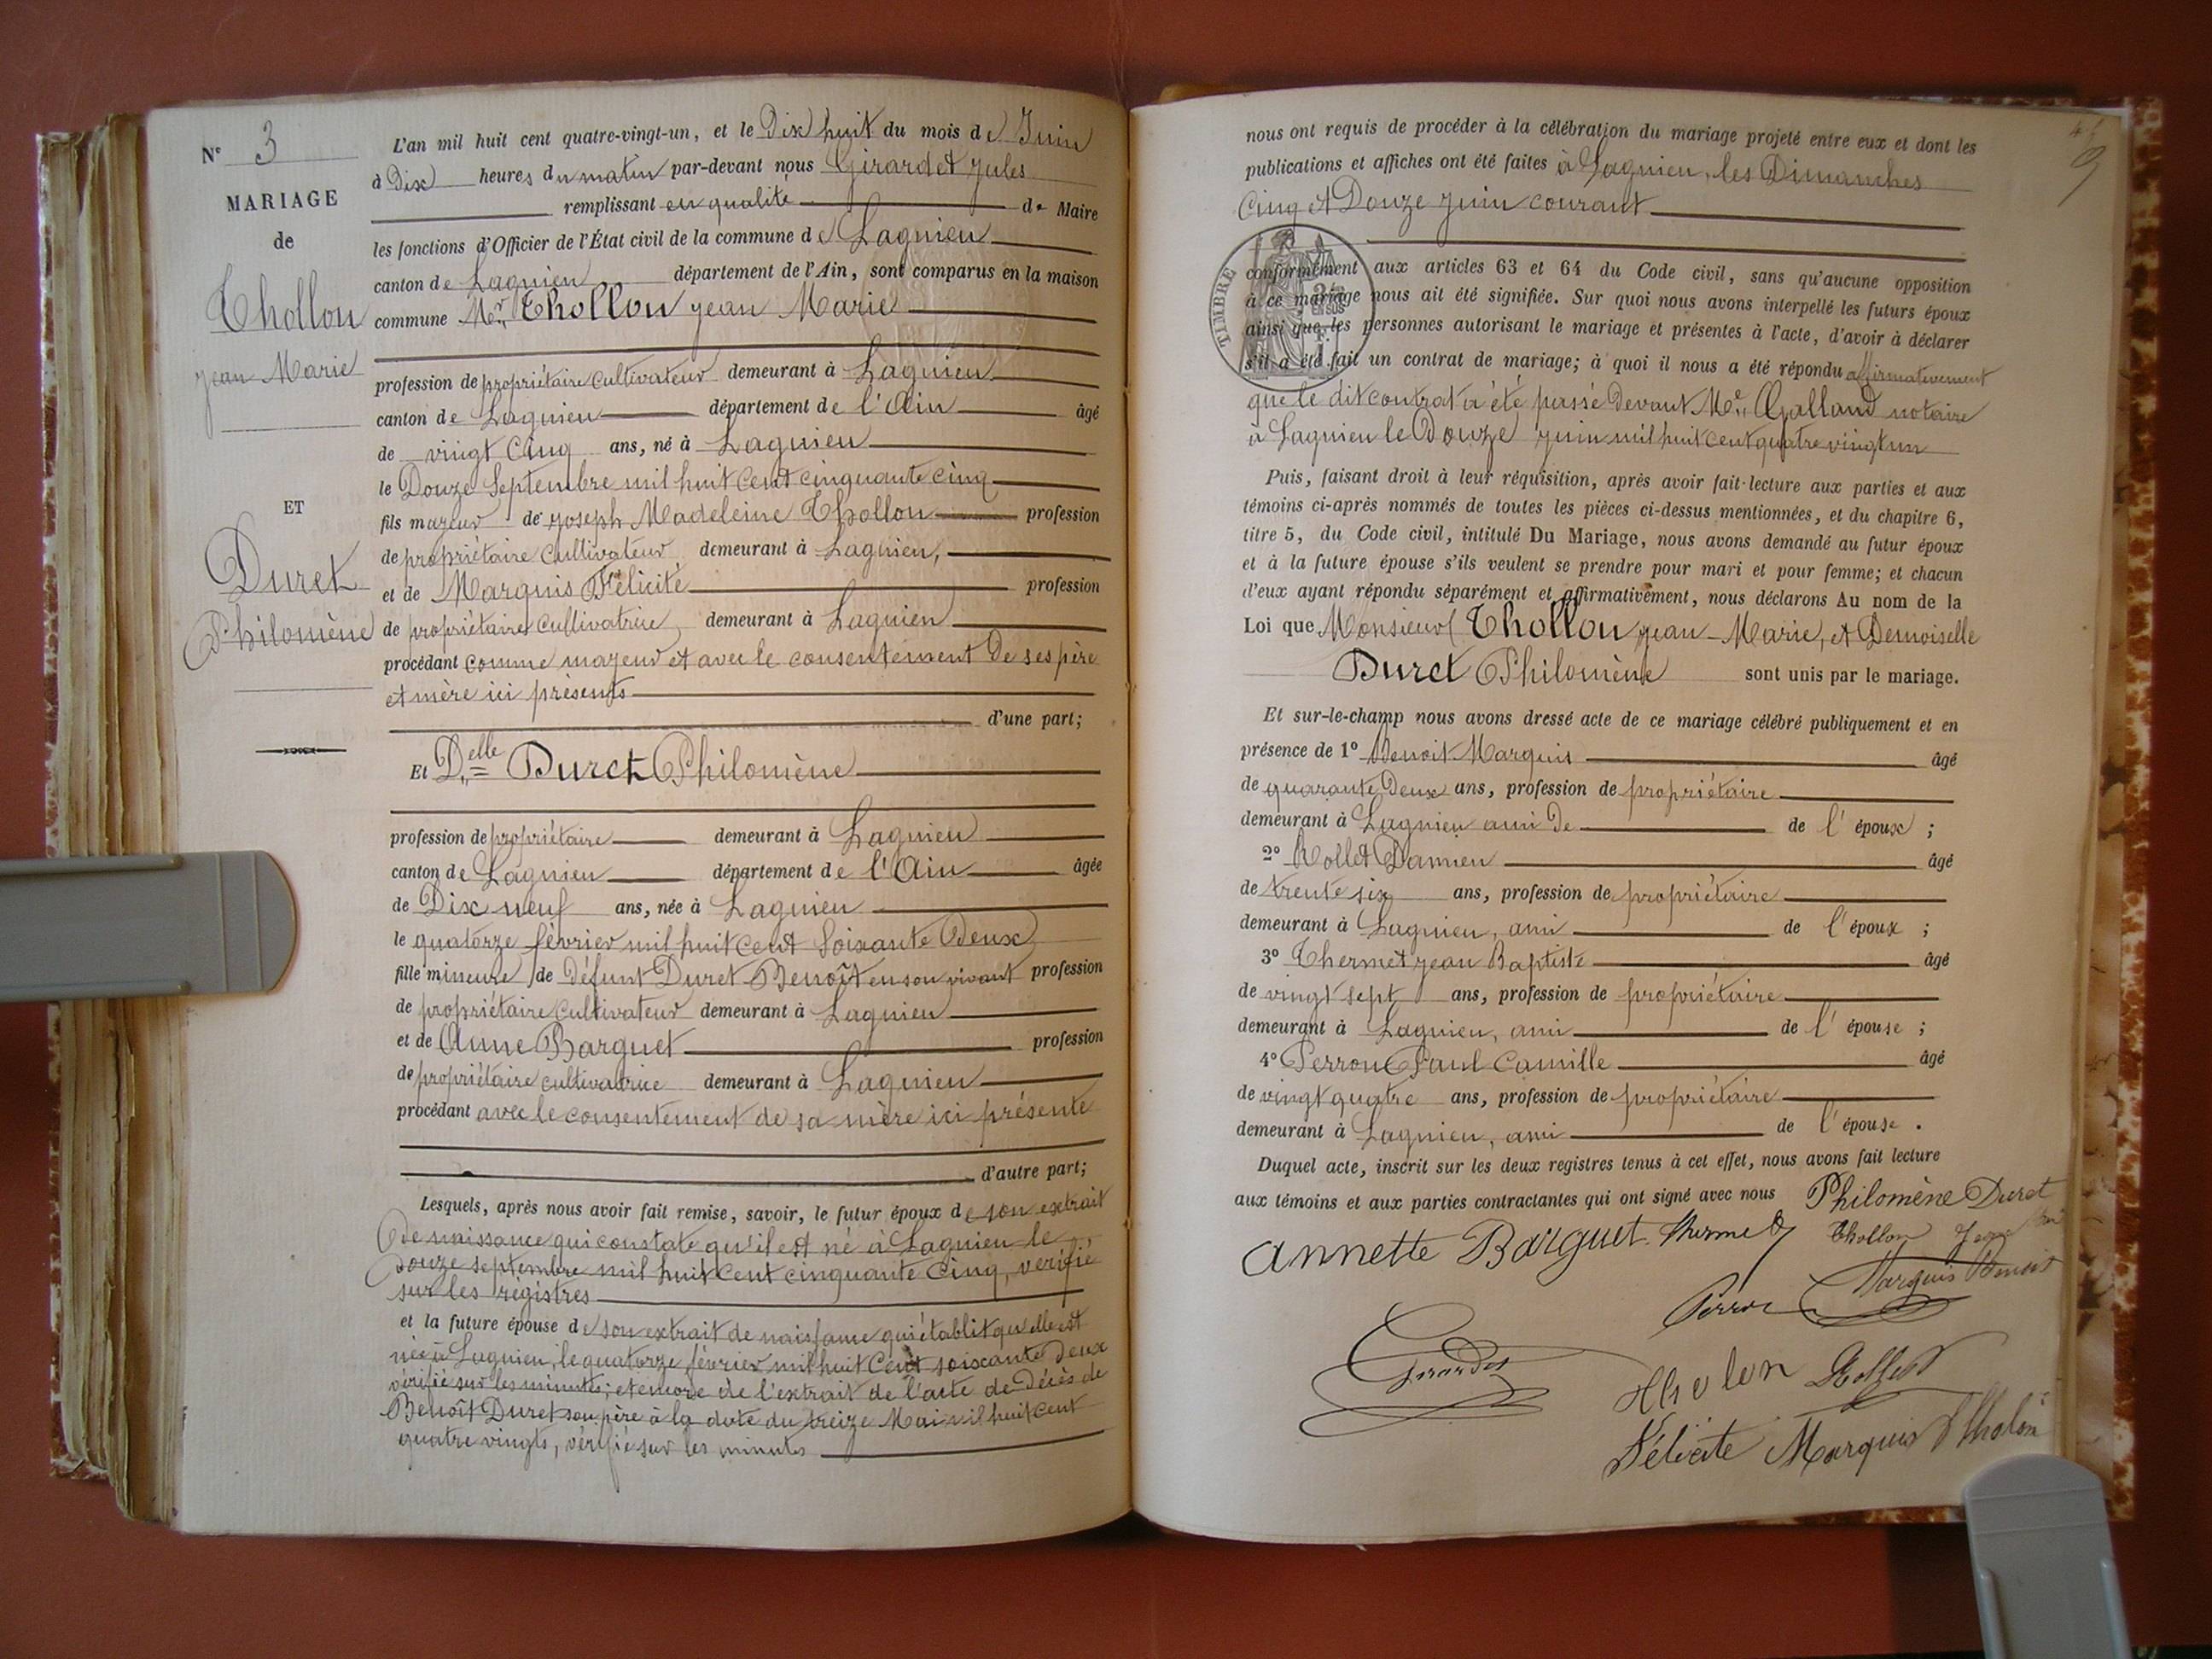 N° 3
MARIAGE
de
Thollon
Jean Marie
ET
Duret
Philomène
L'an mil huit cent quatre-vingt-un, et le Dix huit du mois de Juin
à Dix heures du matin par-devant nous Girardet Jules
remplissant en qualité de Maire
les fonctions d'Officier de l'État civil de la commune de Lagnieu
canton de Lagnieu département de l'Ain, sont comparus en la maison
commune Mr Thollon Jean Marie
profession de propriétaire cultivateur demeurant à Lagnieu
canton de Lagnieu département de l'Ain âgé
de vingt cinq ans, né à Lagnieu
le Douze Septembre mil huit cent cinquante cinq
fils majeur de Joseph Madeleine Thollon profession
de propriétaire cultivateur demeurant à Lagnieu,
et de Marquis Félicité profession
de propriétaire cultivatrice demeurant à Lagnieu
procédant comme majeur et avec le consentement de ses père
et mère ici présents
d'une part;
Et Delle Duret Philomène
profession de propriétaire demeurant à Lagnieu
canton de Lagnieu département de l'Ain âgée
de Dix neuf ans, née à Lagnieu
le quatorze février mil huit cent soixante Deux
fille mineure de défunt Duret Benoît en son vivant profession
de propriétaire cultivateur demeurant à Lagnieu
et de Anne Barguet profession
de propriétaire cultivatrice demeurant à Lagnieu
procédant avec le consentement de sa mère ici présente
d'autre part;
Lesquels, après nous avoir fait remise, savoir, le futur époux de son extrait
de naissance qui constate qu'il est né à Lagnieu le
douze septembre mil huit cent cinquante cinq, vérifié
sur les régistres
et la future épouse de son extrait de naissance qui établit qu'elle est
née à Lagnieu, le quatorze février mil huit cent soixante deux
vérifié sur les minutes; et encore de l'extrait de l'acte de Décès de
Benoît Duret son père à la date du treize Mai mil huit cent
quatre vingts, vérifié sur les minutes
9
nous ont requis de procéder à la célébration du mariage projeté entre eux et dont les
publications et affiches ont été faites à Lagnieu, les Dimanches
Cinq et Douze Juin courant
TIMBRE
conformément aux articles 63 et 64 du Code civil, sans qu'aucune opposition
à ce mariage nous ait été signifiée. Sur quoi nous avons interpellé les futurs époux
ainsi que les personnes autorisant le mariage et présentes à l'acte, d'avoir à déclarer
s'il a été fait un contrat de mariage; à quoi il nous a été répondu affirmativement
que le dit contrat a été passé devant Me Galland notaire
à Lagnieu le Douze juin mil huit cent quatre vingt un
Puis, faisant droit à leur réquisition, après avoir fait lecture aux parties et aux
témoins ci-après nommés de toutes les pièces ci-dessus mentionnées, et du chapitre 6,
titre 5, du Code civil, intitulé Du Mariage, nous avons demandé au futur époux
et à la future épouse s'ils veulent se prendre pour mari et pour femme; et chacun
d'eux ayant répondu séparément et affirmativement, nous déclarons Au nom de la
Loi que Monsieur Thollon Jean-Marie, et Demoiselle
Duret Philomène sont unis par le mariage.
Et sur-le-champ nous avons dressé acte de ce mariage célébré publiquement et en
présence de 1° Benoit Marquis âgé
de quarante Deux ans, profession de propriétaire
demeurant à Lagnieu ami de de l'époux ;
2° Rollet Damien âgé
de trente six ans, profession de propriétaire
demeurant à Lagnieu, ami de l'époux ;
3° Thermet Jean Baptiste âgé
de vingt sept ans, profession de propriétaire
demeurant à Lagnieu, ami de l'épouse ;
4° Perron Paul Camille âgé
de vingt quatre ans, profession de propriétaire
demeurant à Lagnieu, ami de l'épouse .
Duquel acte, inscrit sur les deux registres tenus à cet effet, nous avons fait lecture
aux témoins et aux parties contractantes qui ont signé avec nous Philomène Duret
Annette Barguet Thermet Thollon Jean
Perron Marquis Benoit
Girardet
Tholon Rollet
Félicite Marquis Tholon